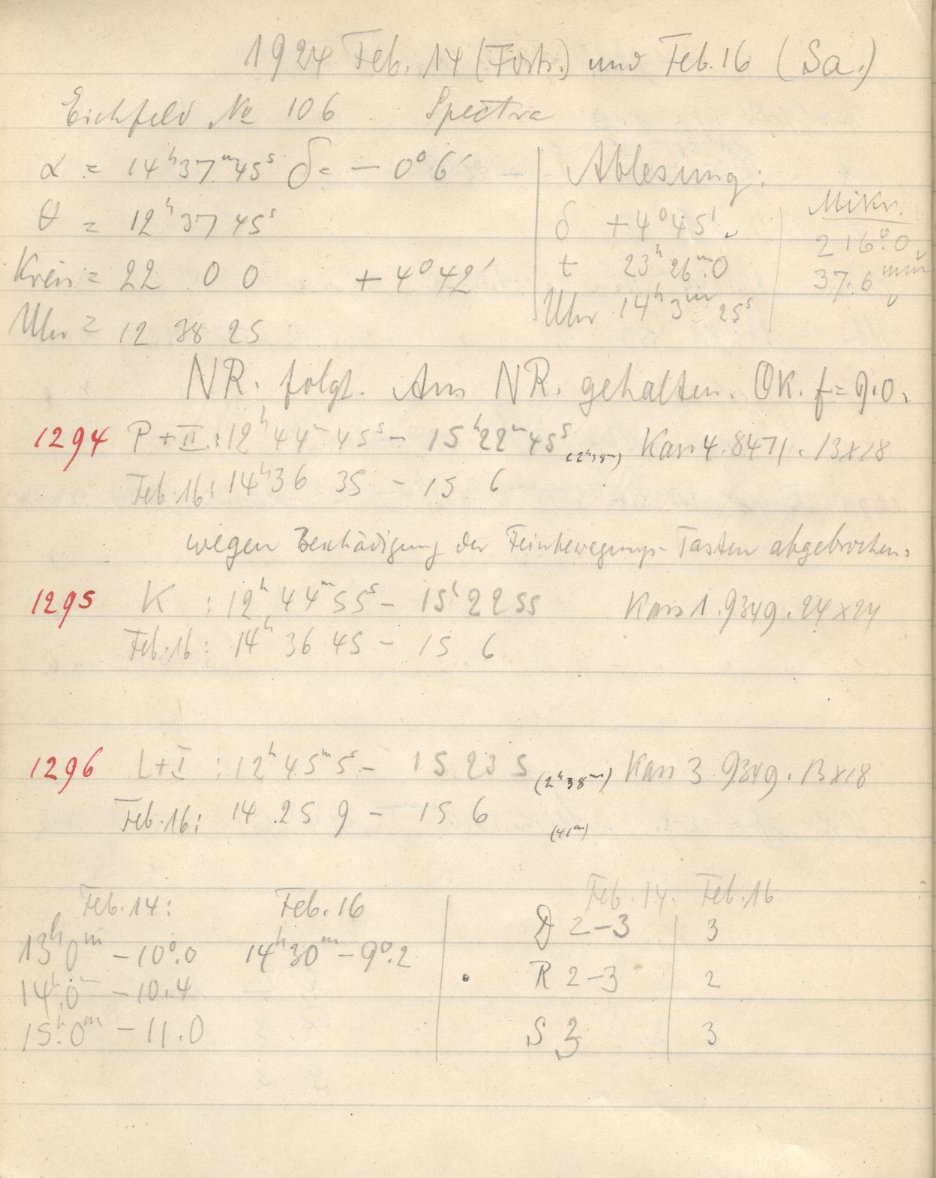 1924 Feb. 14 (Forts.) und Feb. 16 (Sa.)
Eichfeld № 106. Spectra
α = 14ʰ37ᵐ45ˢ δ = − 0°6′
θ = 12ʰ 37 45ˢ
Kreis = 22 0 0 + 4°42′
Uhr = 12 38 25
Ablesung:
δ +4°45′
t 23ʰ 26ᵐ.0
Uhr 14ʰ 3ᵐ 25ˢ
Mikr.
216°.0
37.6 mm
NR. folgt. Am NR. gehalten. OK. f = 9.0.
1294 P + II : 12ʰ44ᵐ45ˢ − 15ʰ22ᵐ45ˢ (2ʰ38ᵐ) Kass 4. 8471. 13x18
Feb. 16: 14ʰ36 35 − 15 6
wegen Beschädigung der Feinbewegungs-Tasten abgebrochen.
1295 K : 12ʰ 44ᵐ 55ˢ − 15ʰ 22 55 Kass 1. 9349. 24x24
Feb. 16: 14ʰ 36 45 − 15 6
1296 L+I : 12ʰ 45ᵐ 5ˢ − 15 23 5 (2ʰ38ᵐ) Kass 3. 9349. 13x18
Feb. 16: 14 25 9 − 15 6 (41ᵐ)
Feb. 14: Feb. 16
13ʰ0ᵐ −10°.0 14ʰ30ᵐ −9°.2
14ʰ.0ᵐ −10.4
15ʰ.0ᵐ −11.0
Feb. 14. Feb. 16
D 2−3 3
R 2−3 2
S 3 3